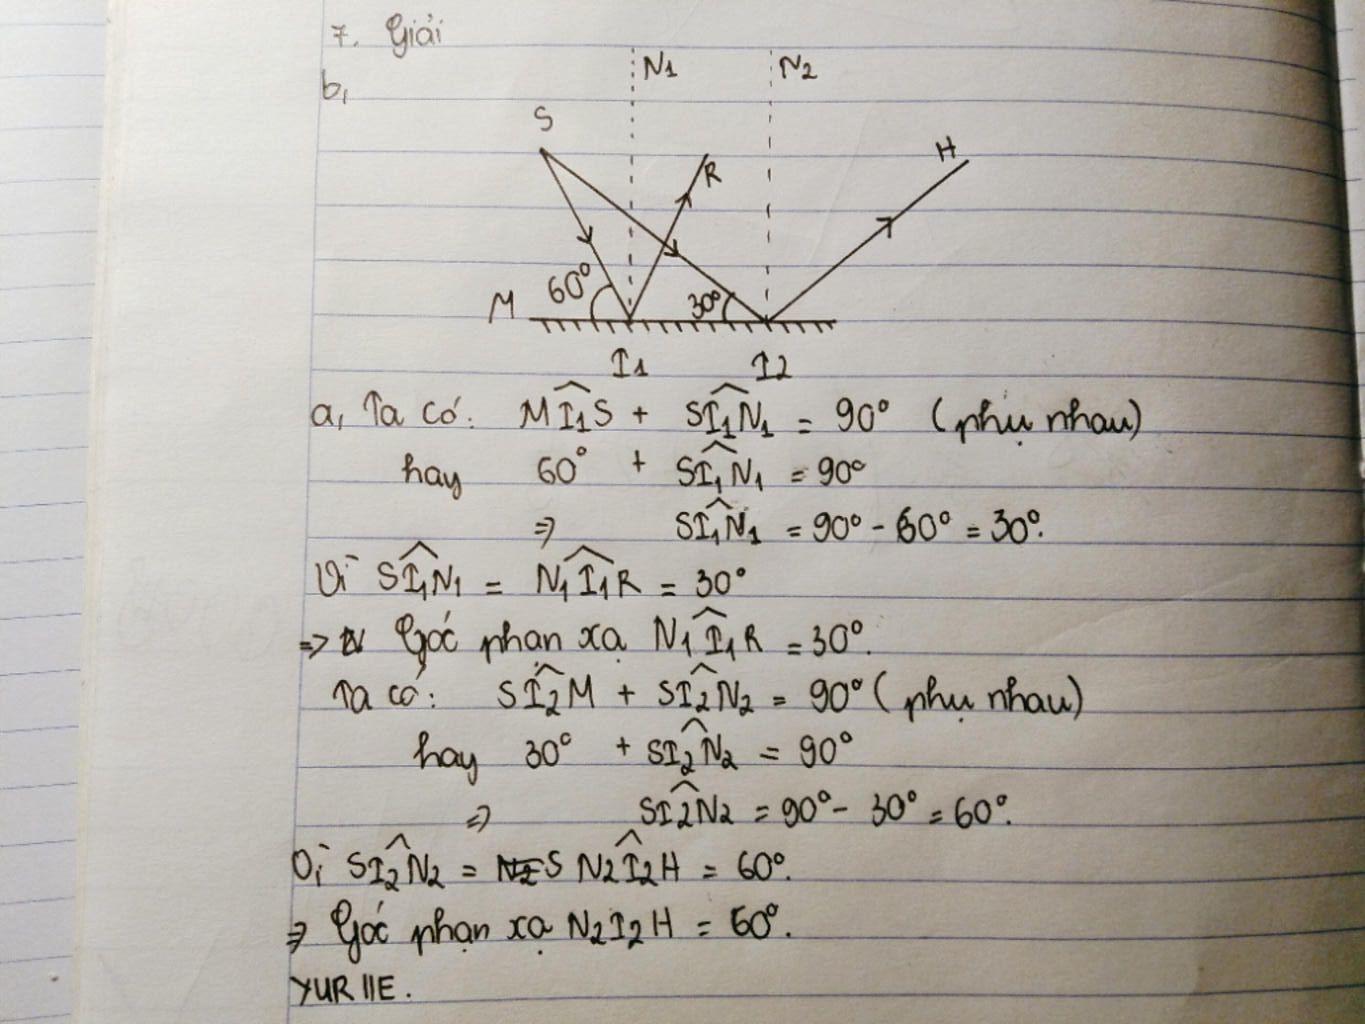 7. Giải
N1 N2
b,
S
H
R
M 60° 30°
I1 I2
a, Ta có: MI1S + SI1N1 = 90° (phụ nhau)
hay 60° + SI1N1 = 90°
=> SI1N1 = 90° - 60° = 30°.
Vì SI1N1 = N1I1R = 30°
=> Góc phan xạ N1I1R = 30°.
Ta có: SI2M + SI2N2 = 90° (phụ nhau)
hay 30° + SI2N2 = 90°
=> SI2N2 = 90° - 30° = 60°.
Vì SI2N2 = N2I2H = 60°.
=> Góc phạn xạ N2I2H = 60°.
YURIIE.